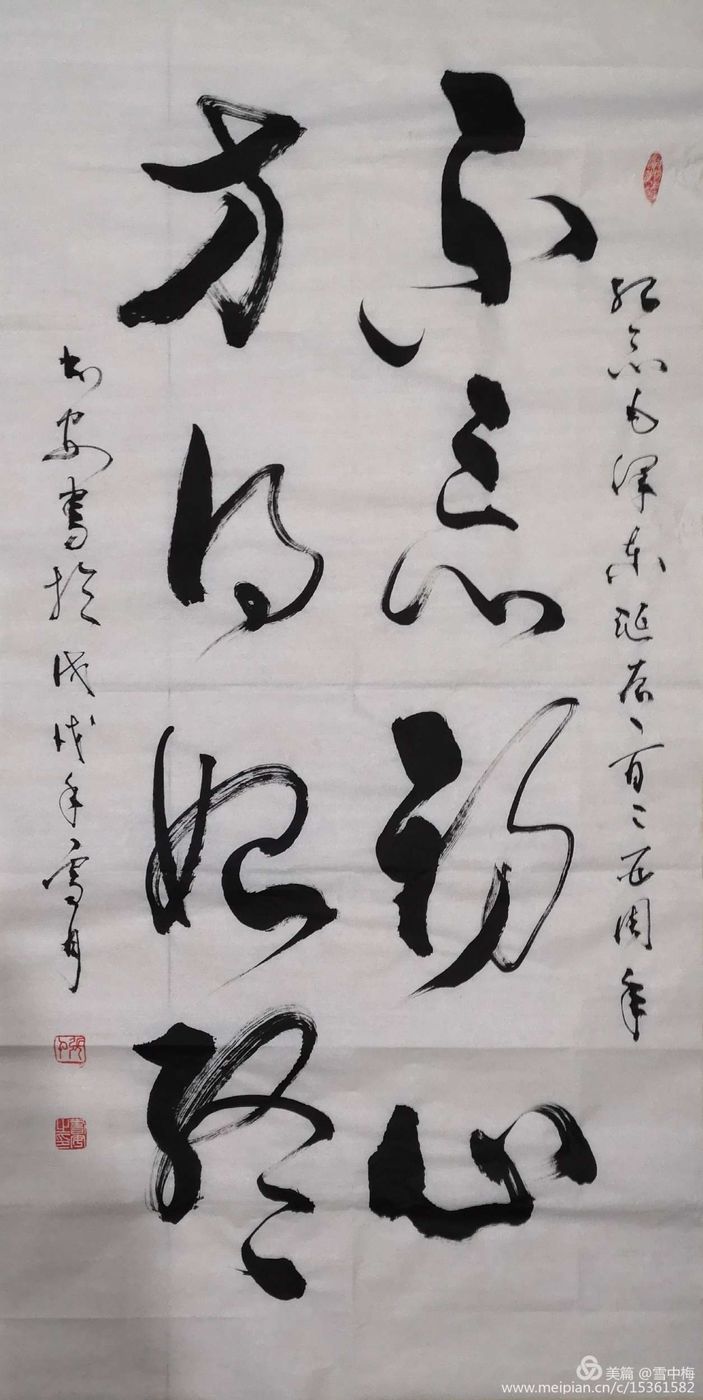 纪念毛泽东诞辰一百二五周年
不忘初心
方得始终
书安書於戊戌年雪月
美篇 @雪中梅
www.meipian.cn/c/15361582